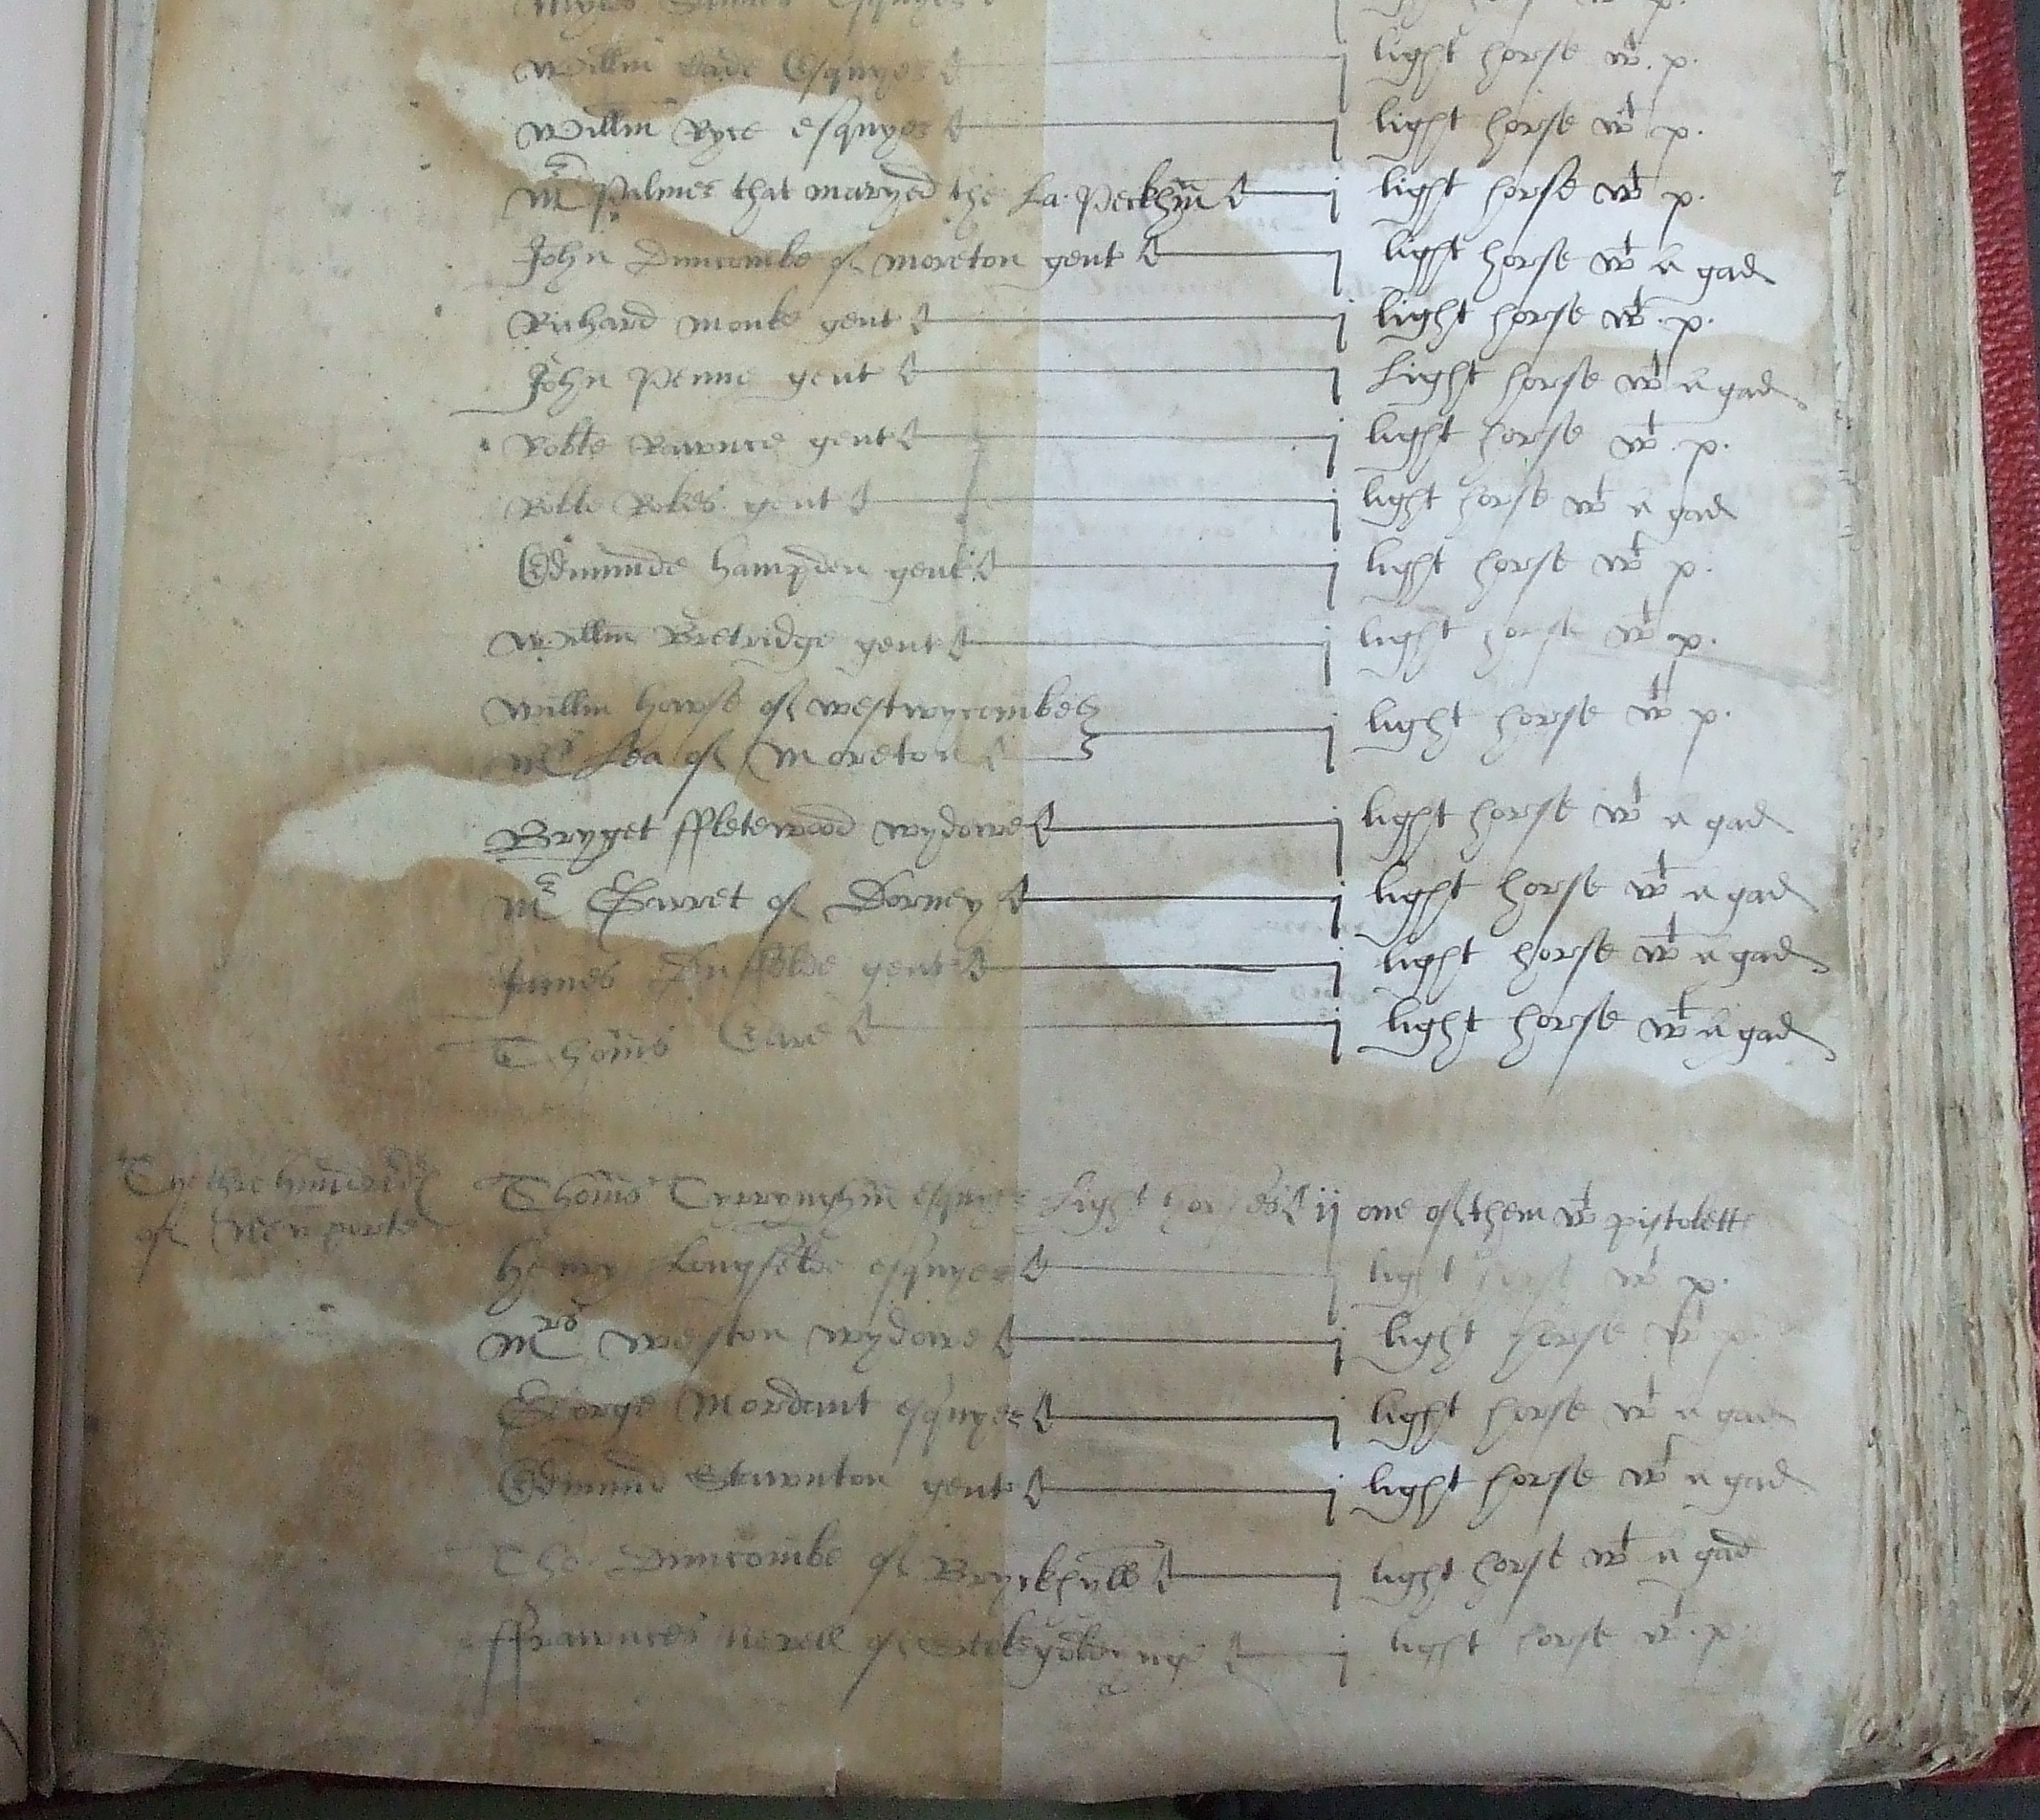 Myles Esquyer light horse wt p.
Willm Esquyer j light horse wt. p.
Willm Ryce esquyer j light horse wt p.
Mr Palmer that maryed the La: Peckhm j light horse wt p.
John Duncombe of Moreton gent j light horse wt a gad
Richard Monke gent j light horse wt. p.
John Penne gent j Light horse wt a gad
Robte Rawnce gent j light horse wt. p.
Robte Rokes gent j light horse wt a gad
Edmunde hampden gent j light horse wt p.
Willm Bretridge gent j light horse wt p.
Willm hawse of westwycombe
Mr Lea of Moreton j light horse wt p.
Bryget ffletewood wydowe j light horse wt a gad
Mr Garret of Dorney j light horse wt a gad
James Duffelde gent j light horse wt a gad
Thoms Care j light horse wt a gad
The thre hundreds
of Newporte
Thoms Tyrrynghm esquyer Light horses ij one of them wt pistolett
Henry Longfelde esquyer j light horse wt p.
Mrs Weston wydowe j light horse wt p.
George Mordant esquyer j light horse wt a gad
Edmund Stawnton gent j light horse wt a gad
Tho. Duncombe of Bryckhyll j light horse wt a gad
ffrawnces Nevell of j light horse wt. p.